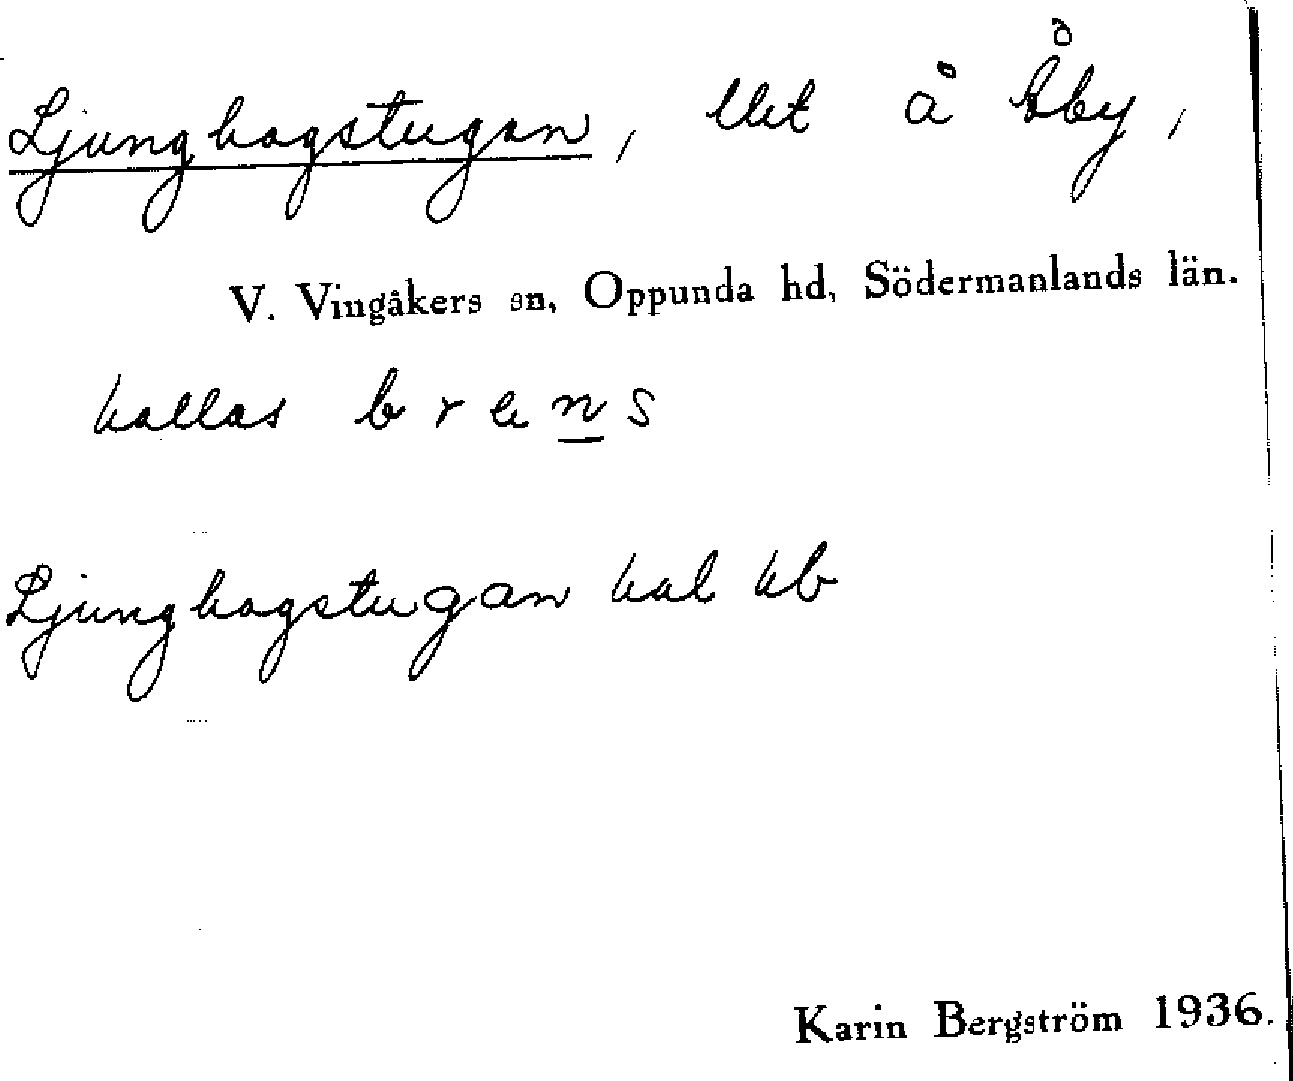 Ljunghagstugan, llet å Åby,
V. Vingåkers sn, Oppunda hd, Södermanlands län.
kallas
Ljunghagstugan kal kb
Karin Bergström 1936.